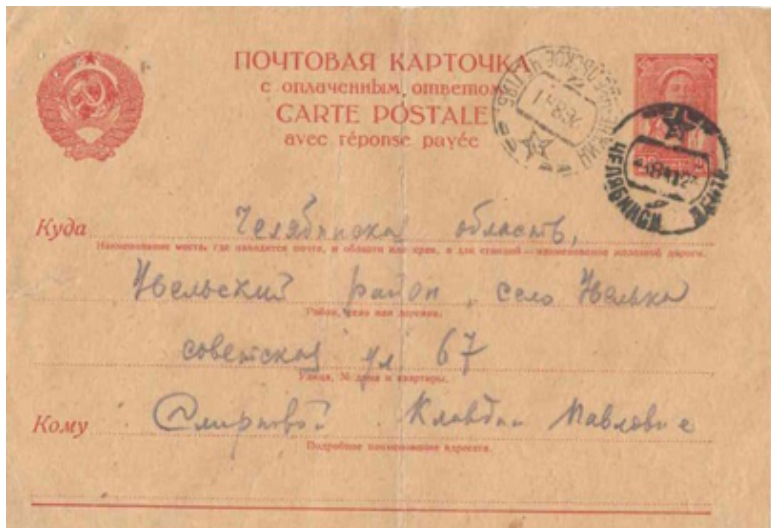 ПОЧТОВАЯ КАРТОЧКА
с оплаченным ответом
CARTE POSTALE
avec réponse payée
ЧЕЛЯБИНСК
Куда Челябинская область,
Наименование места, где находится почта, и области или края, а для станций — наименование железной дороги.
Увельский район, село Увелька
Район, село или деревня.
советская ул 67
Улица, № дома и квартиры.
Кому Смирновой Клавдии Павловне
Подробное наименование адресата.